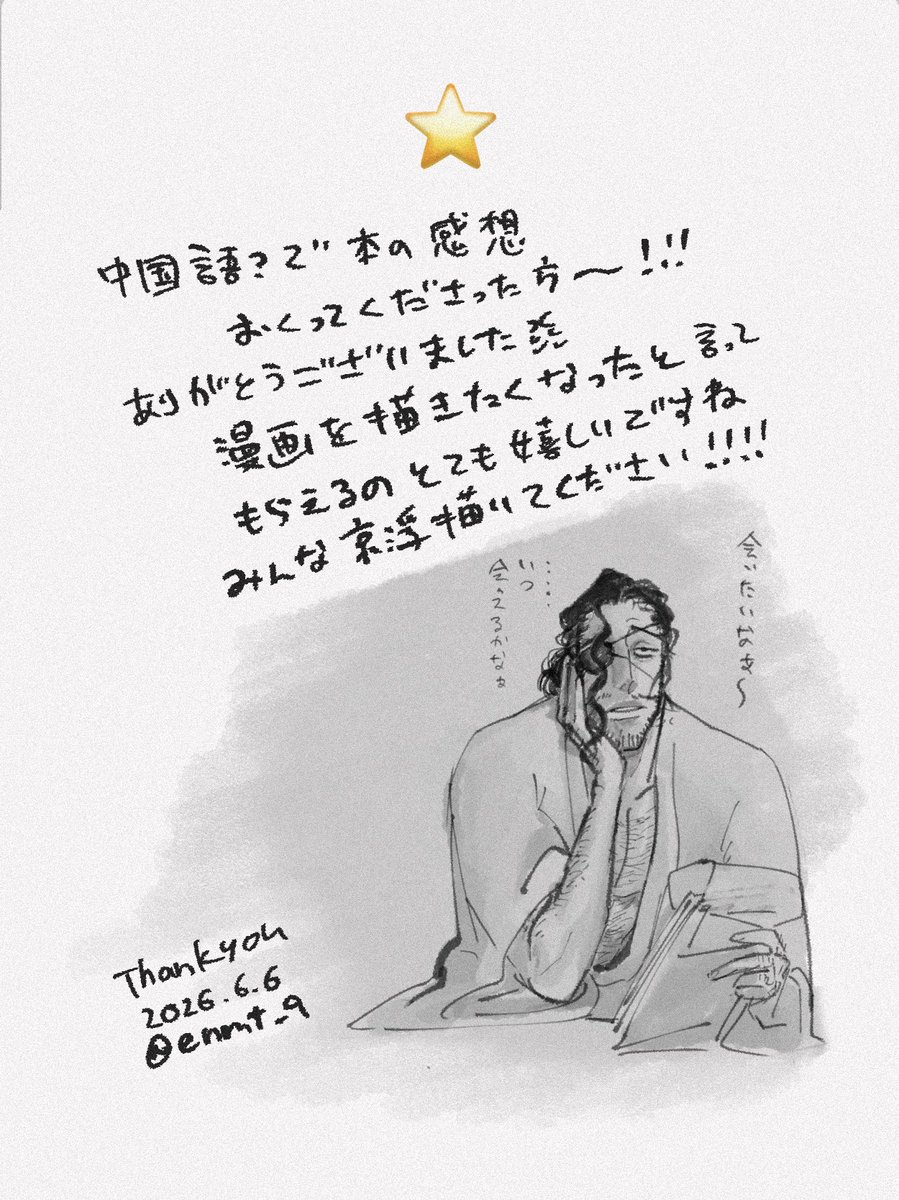 中国語?で本の感想
おくってくださった方〜!!!
ありがとうございました※
漫画を描きたくなったと言って
もらえるのとても嬉しいですね
みんな哀浮描いてください!!!!
会いたいなぁ〜
....いつ
会えるかなぁ
Thankyou
2026.6.6
@enmt_9